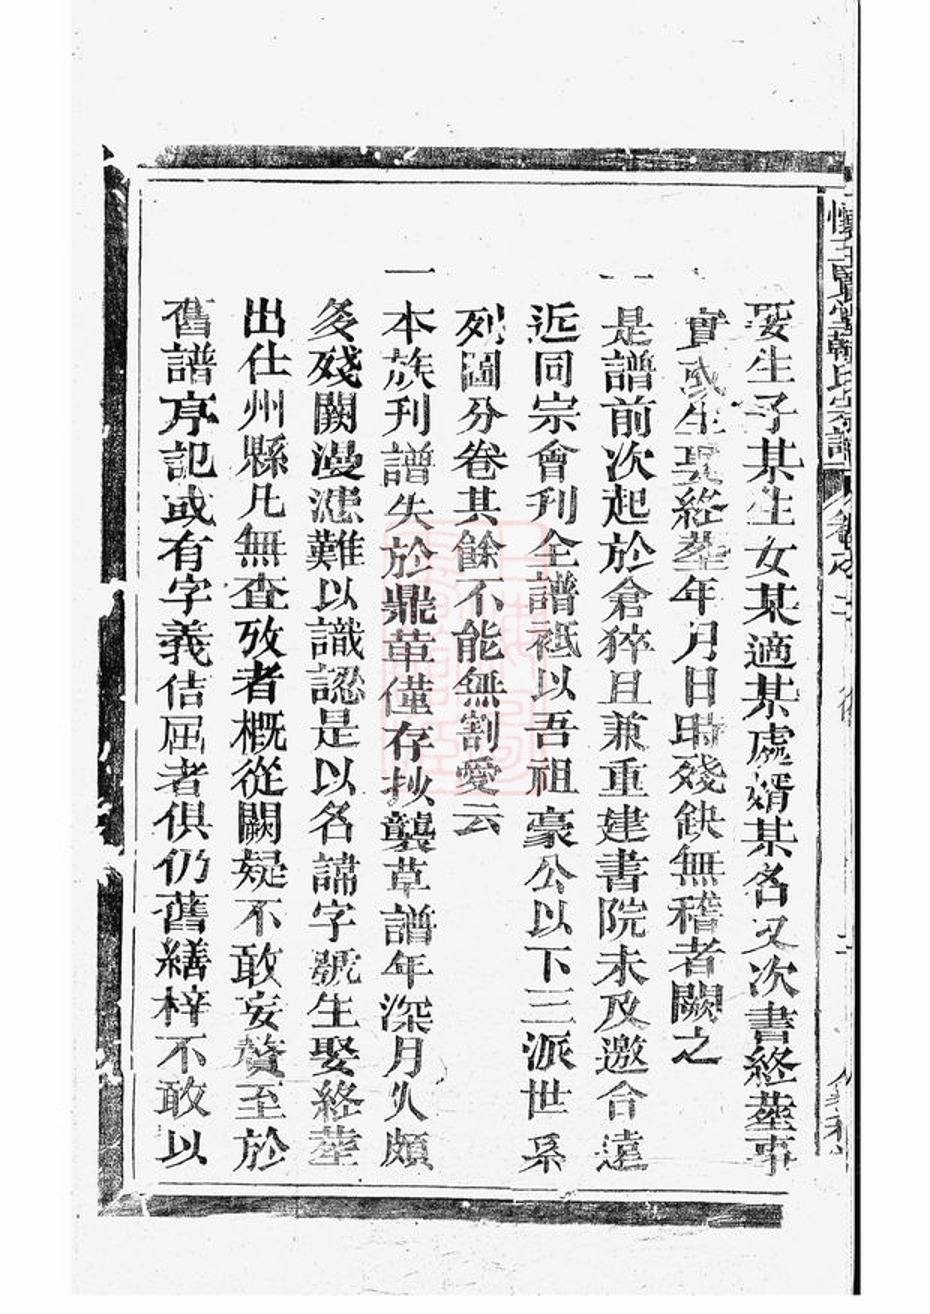 娶生子某生女某適某處婿某名又次書終塟事
實或生娶終塟年月日時殘鈌無稽者闕之
一是譜前次起於倉猝且兼重建書院未及邀合遠
近同宗會刋全譜祗以吾祖豪公以下三派世系
列圖分卷其餘不能無割愛云
一本族刋譜失於鼎革僅存抄襲草譜年深月久頗
多殘闕漫漶難以識認是以名諱字號生娶終塟
出仕州縣凡無查攷者概從闕疑不敢妄贅至於
舊譜序記或有字義佶屈者俱仍舊繕梓不敢以